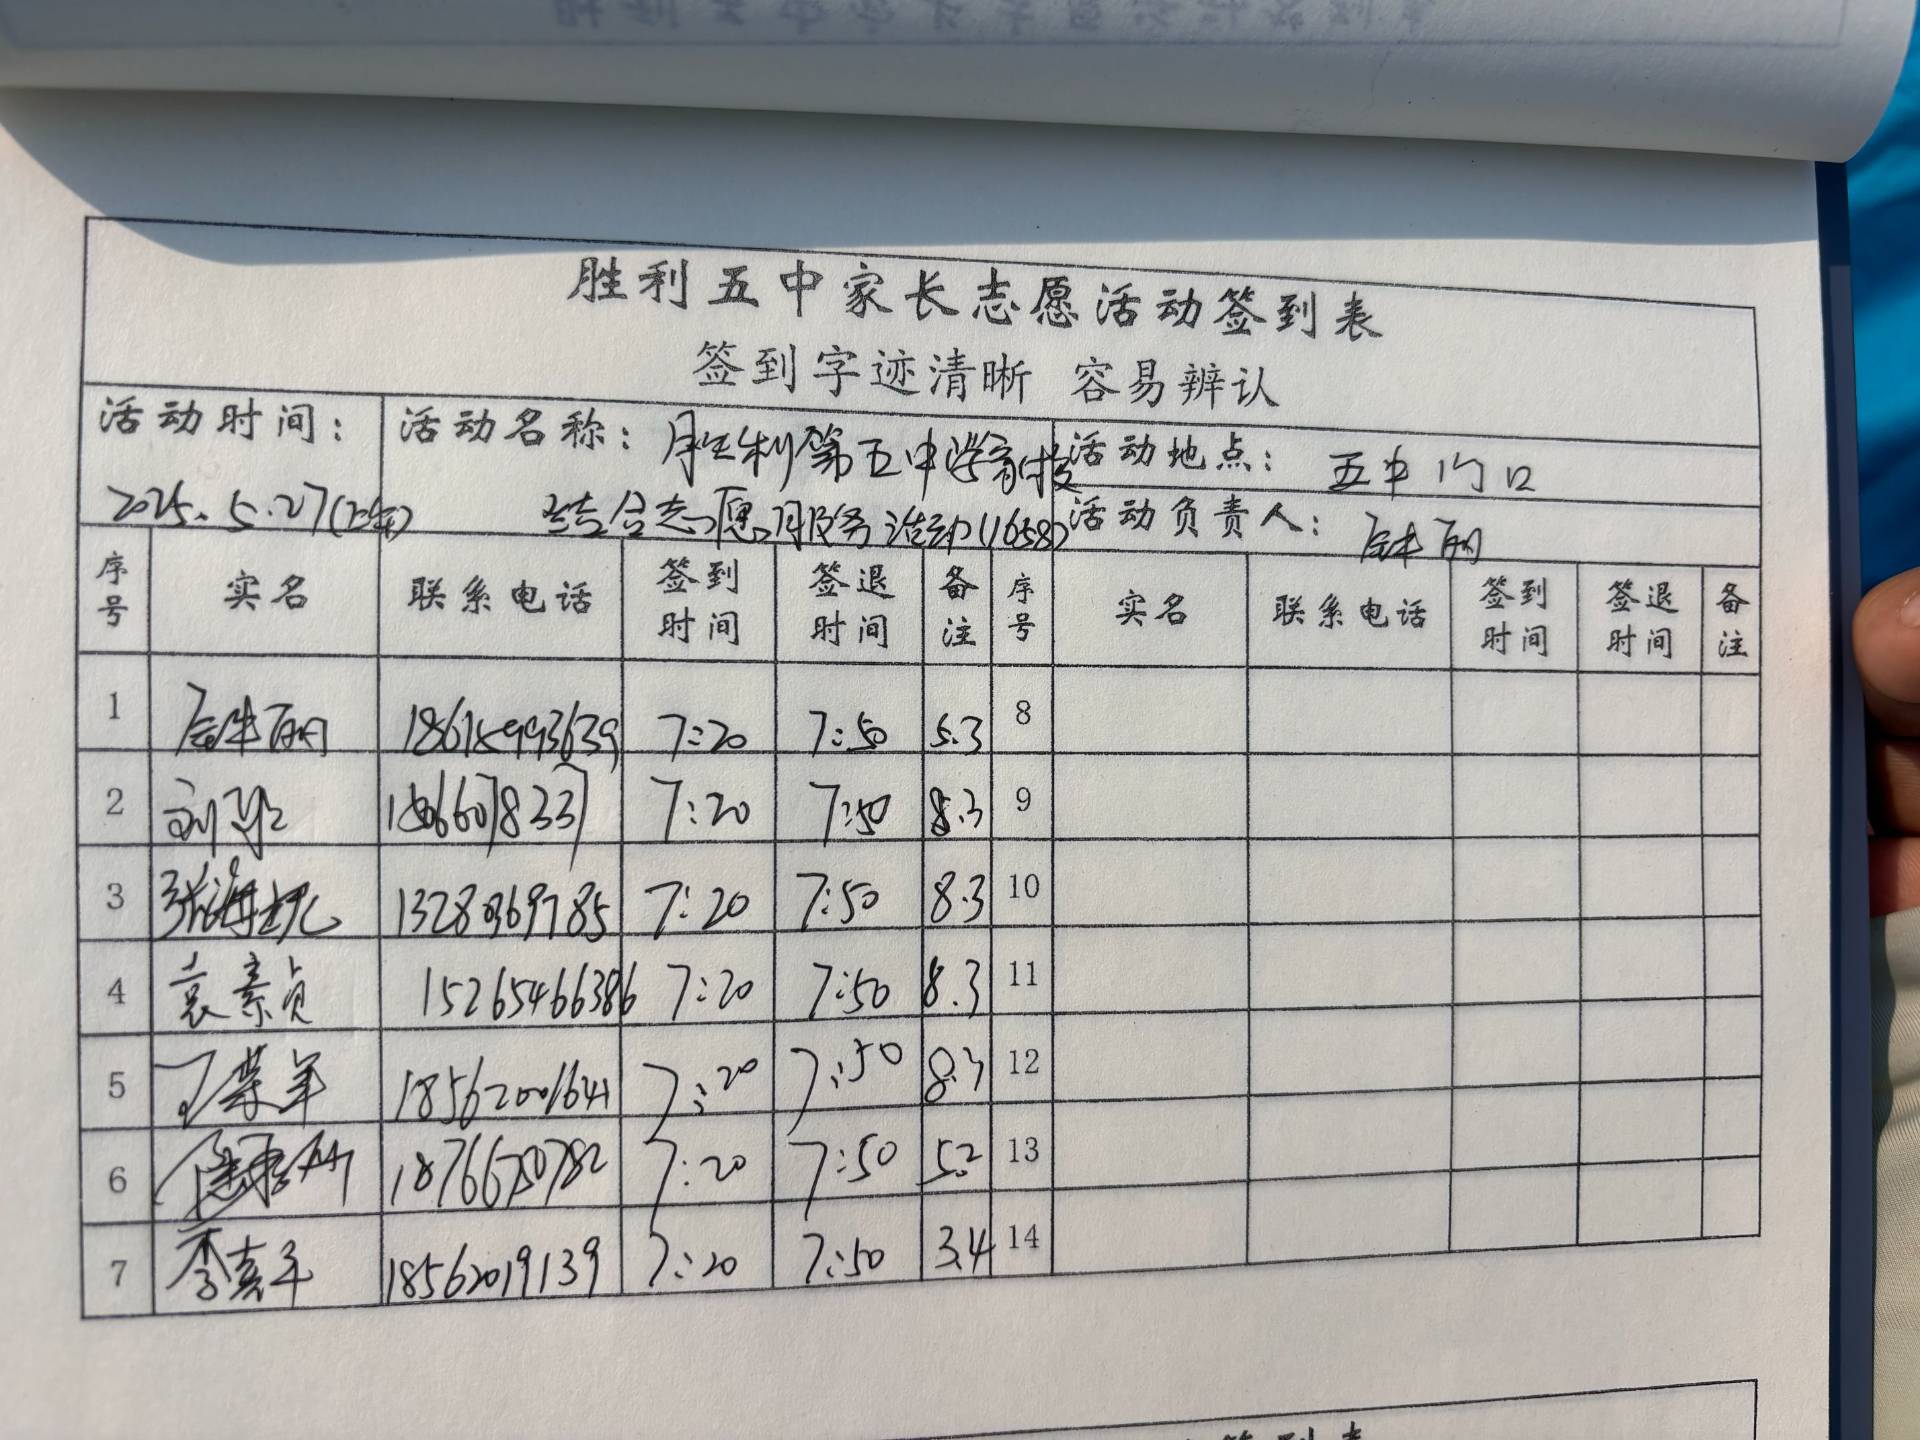 胜利五中家长志愿活动签到表
签到字迹清晰 容易辨认
活动时间：
2025.5.27(上午)
活动名称：胜利第五中学育校
结合志愿服务活动(1658)
活动地点：五中门口
活动负责人：丽
序号 实名 联系电话 签到时间 签退时间 备注 序号 实名 联系电话 签到时间 签退时间 备注
1 丽 18615993639 7:20 7:50 5.3 8
2 刘 7:20 7:50 8.3 9
3 张海 13280369785 7:20 7:50 8.3 10
4 袁素贞 15265466386 7:20 7:50 8.3 11
5 18562001641 7:20 7:50 8.3 12
6 7:20 7:50 5.2 13
7 李 18562019139 7:20 7:50 3.4 14
签到表